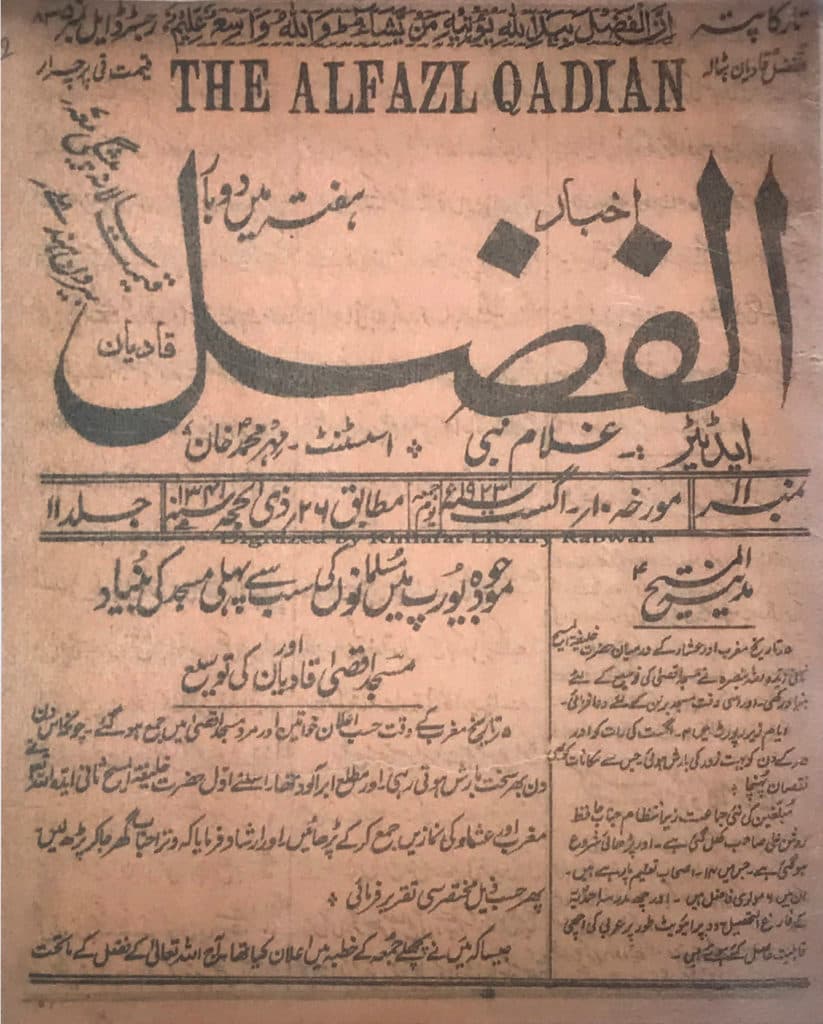 تار کا پتہ
ان الفضل بید اللہ یؤتیہ من یشاء واللہ واسع علیم
رجسٹرڈ ایل نمبر ۸۳۵
الفضل قادیان بٹالہ
THE ALFAZL QADIAN
قیمت فی پرچہ ار
قیمت سالانہ پیشگی
بیرون ہند
اخبار
ہفتہ میں دو بار
الفضل
قادیان
ایڈیٹر :- غلام نبی ÷ اسسٹنٹ - مہر محمد خان
نمبر ۱۱
مورخہ ۱۰ - اگست ۱۹۲۳ء
یوم جمعہ
مطابق ۲۶ ذی الحجہ
سنہ ۱۳۴۱
جلد ۱۱
Digitized by Khilafat Library Rabwah
المسیح
مدینہ
۵ تاریخ مغرب اور عشاء کے درمیان حضرت خلیفۃ المسیح
ثانی ایدہ اللہ بنصرہ نے مسجد اقصیٰ کی توسیع کے لئے
بنیاد رکھی - اور اسی وقت مسجد برلن کے لئے دعا فرمائی -
ایام زیر رپورٹ میں ۴ - اگست کی رات کو اور
۵ - کے دن کو بہت زور کی بارش ہوئی جس سے مکانات کو بھی
نقصان پہنچا ÷
مبلغین کی نئی جماعت زیر انتظام جناب حافظ
روشن علی صاحب کھل گئی ہے - اور پڑھائی شروع
ہو گئی ہے - جس میں ۱۲ - اصحاب تعلیم پا رہے ہیں -
ان میں ۶ مولوی فاضل ہیں - اور چھ مدرسہ احمدیہ
کے فارغ التحصیل پرائیویٹ طور پر عربی کی اچھی
قابلیت حاصل کئے ہوئے ہیں -
موجودہ یورپ میں مسلمانوں کی سب سے پہلی مسجد کی بنیاد
اور
مسجد اقصیٰ قادیان کی توسیع
۵ تاریخ مغرب کے وقت حسب اعلان خواتین اور مرد مسجد اقصیٰ میں جمع ہو گئے - چونکہ اس دن
دن بھر سخت بارش ہوتی رہی - اور مطلع ابر آلود تھا - اسلئے اول حضرت خلیفۃ المسیح ثانی ایدہ اللہ نے
مغرب اور عشاء کی نمازیں جمع کر کے پڑھائیں - اور ارشاد فرمایا کہ وتر احباب گھر جا کر پڑھ لیں
پھر حسب ذیل مختصر سی تقریر فرمائی ÷
جیسا کہ میں نے پچھلے جمعہ کے خطبہ میں اعلان کیا تھا - آج اللہ تعالیٰ کے فضل کے ماتحت